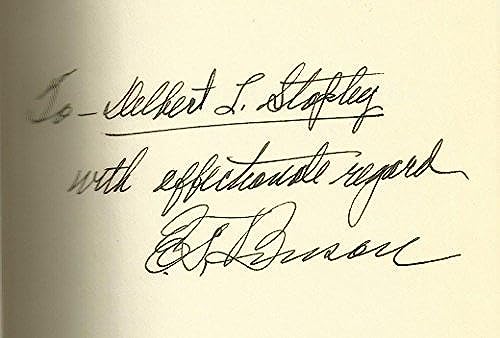 To - Delbert L. Stapley
with affectionate regard
E. T. Benson